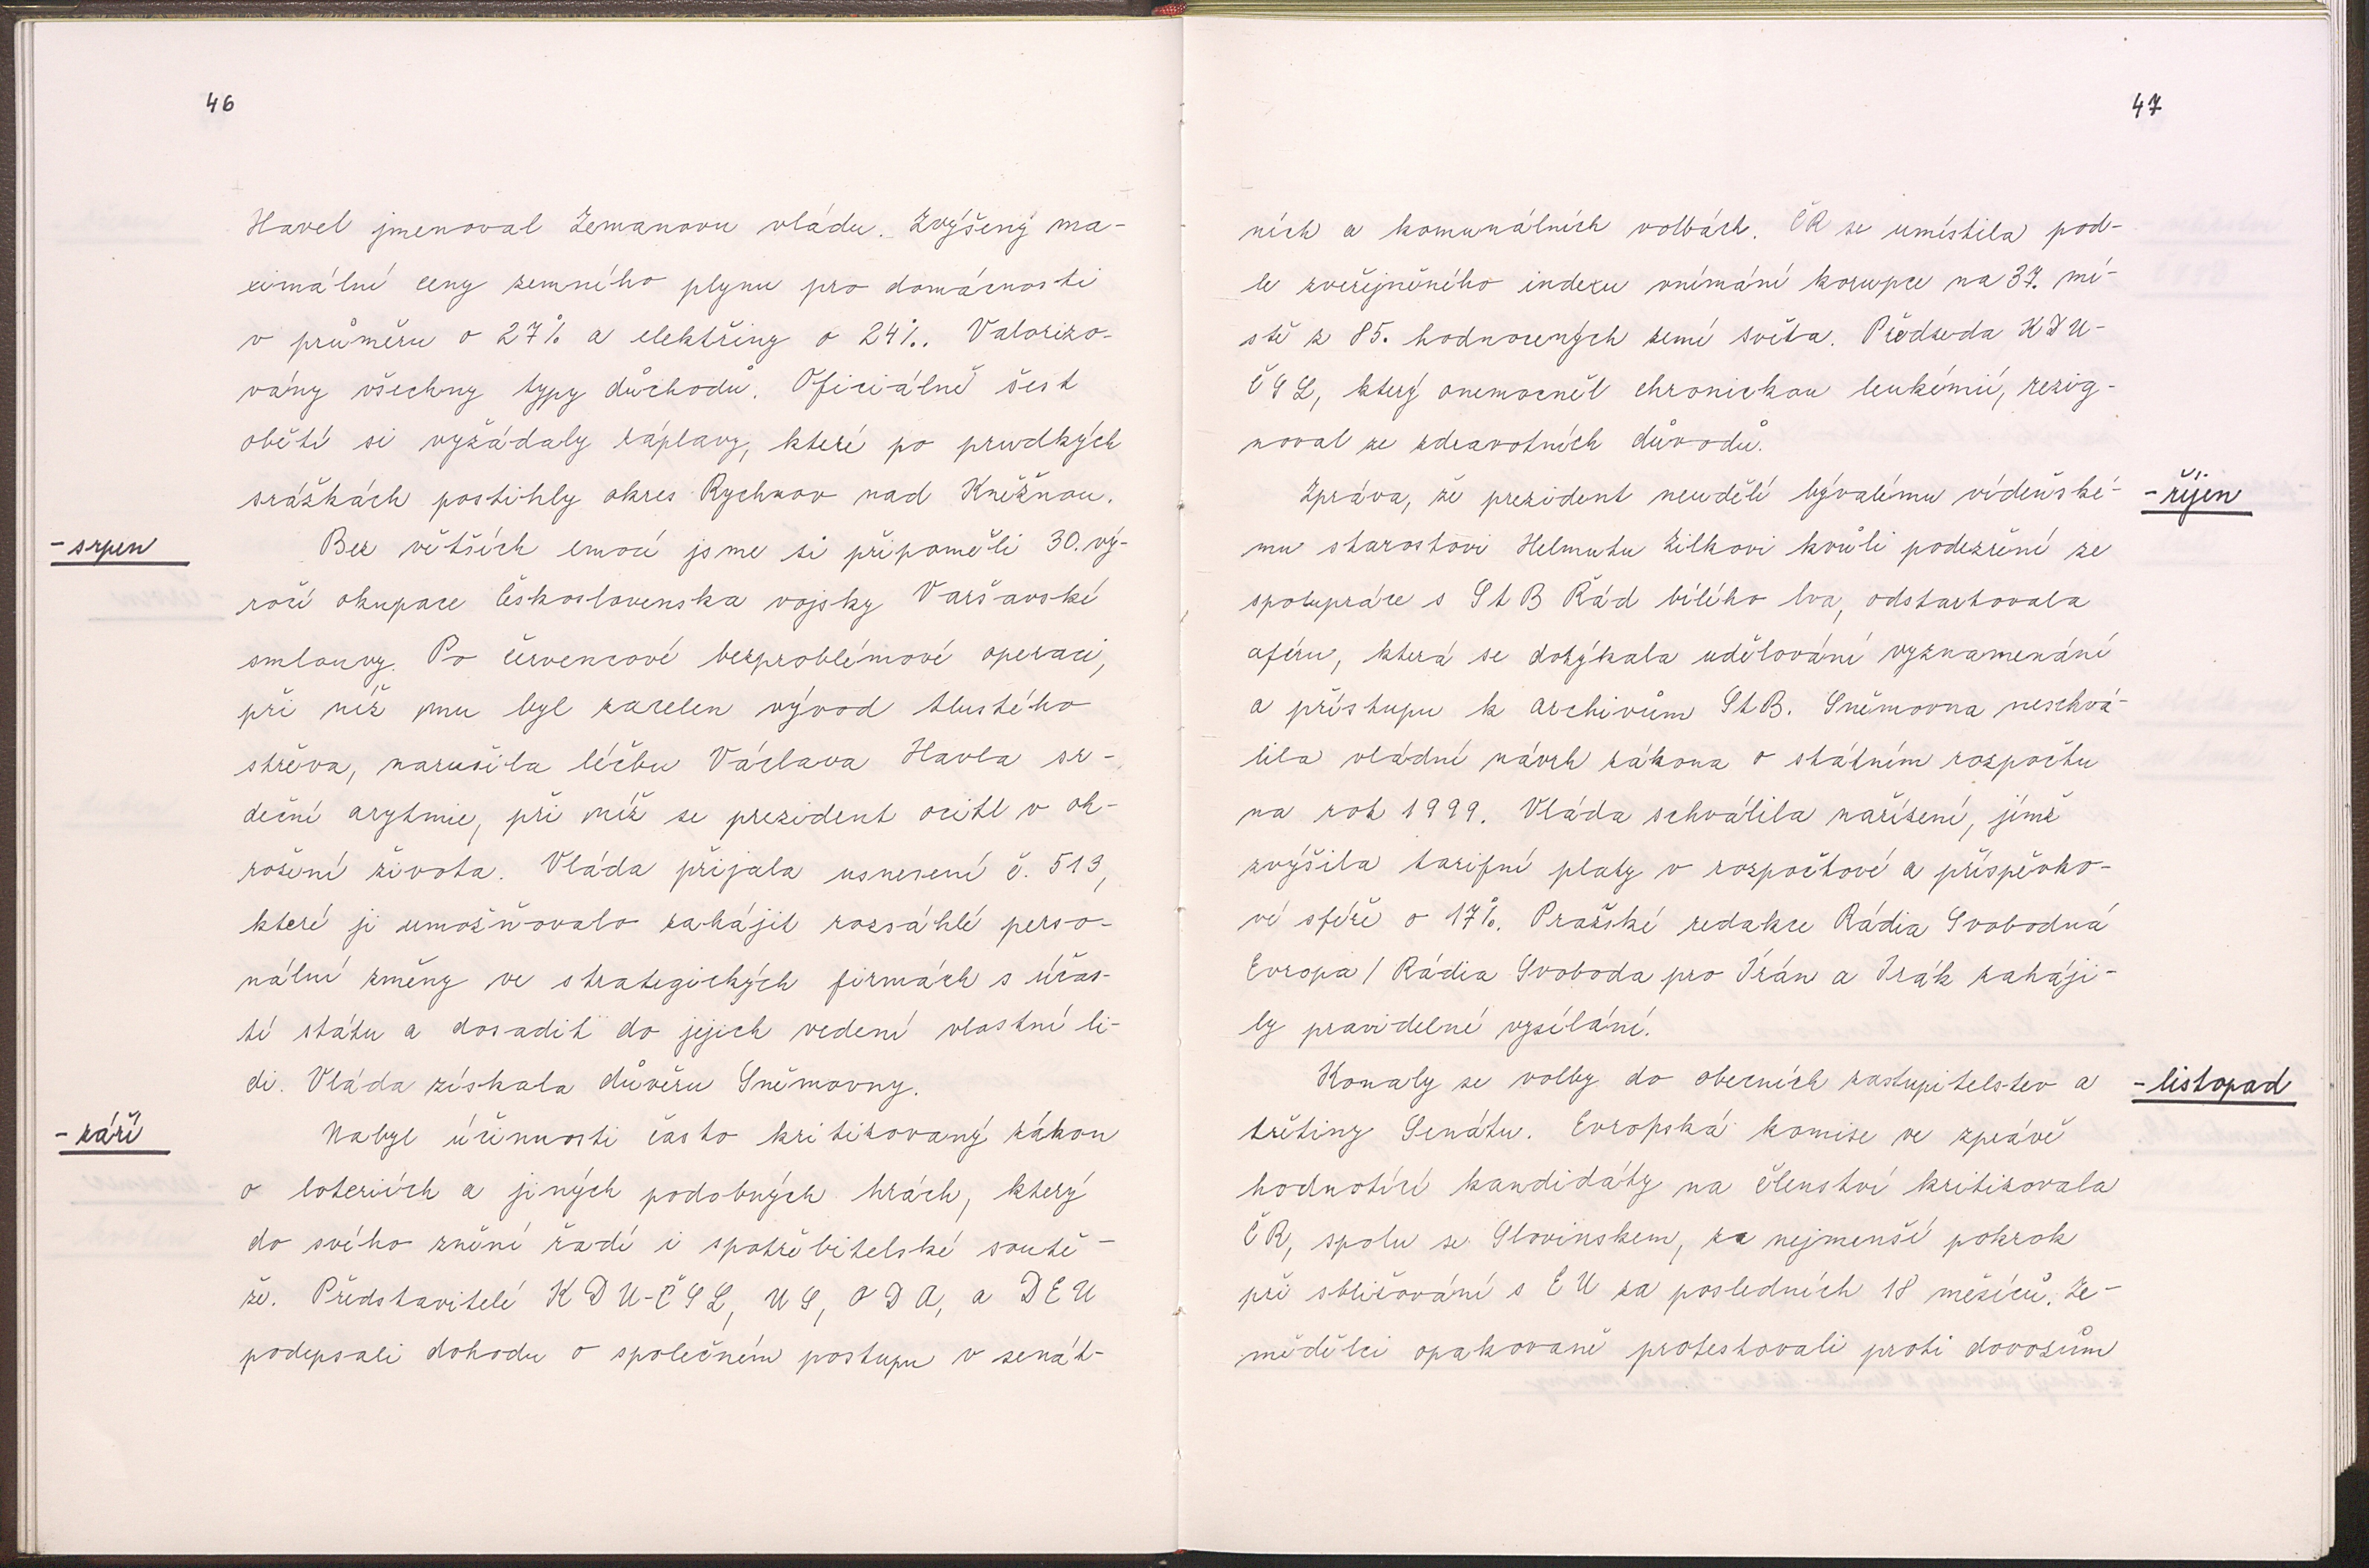 46
Havel jmenoval Zemanovu vládu. Zvýšeny ma-
ximální ceny zemního plynu pro domácnosti
v průměru o 27% a elektřiny o 24%. Valorizo-
vány všechny typy důchodů. Oficiálně šest
obětí si vyžádaly záplavy, které po prudkých
srážkách postihly okres Rychnov nad Kněžnou.
- srpen
Bez větších emocí jsme si připoměli 30. vý-
ročí okupace Československa vojsky Varšavské
smlouvy. Po červencové bezproblémové operaci,
při níž mu byl zacelen vývod tlustého
střeva, narušila léčbu Václava Havla sr-
deční arytmie, při níž se prezident ocitl v oh-
rožení života. Vláda přijala usnesení č. 513,
které ji umožňovalo zahájit rozsáhlé perso-
nální změny ve strategických firmách s účas-
tí státu a dosadit do jejich vedení vlastní li-
di. Vláda získala důvěru Sněmovny.
- září
Nabyl účinnosti často kritizovaný zákon
o loteriích a jiných podobných hrách, který
do svého znění řadí i spotřebitelské soutě-
že. Představitelé KDU-ČSL, US, ODA, a DEU
podepsali dohodu o společném postupu v senát-
47
ních a komunálních volbách. ČR se umístila pod-
le zveřejněného indexu vnímání korupce na 37. mí-
stě z 85. hodnocených zemí světa. Předseda KDU-
ČSL, který onemocněl chronickou leukémií, rezig-
noval ze zdravotních důvodů.
- říjen
Zpráva, že prezident neudělí bývalému vídeňské-
mu starostovi Helmutu Zilkovi kvůli podezření ze
spolupráce s StB Řád bílého lva, odstartovala
aféru, která se dotýkala udělování vyznamenání
a přístupu k archivům StB. Sněmovna neschvá-
lila vládní návrh zákona o státním rozpočtu
na rok 1999. Vláda schválila nařízení, jímž
zvýšila tarifní platy v rozpočtové a příspěvko-
vé sféře o 17%. Pražské redakce Rádia Svobodná
Evropa / Rádia Svoboda pro Írán a Irák zaháji-
ly pravidelné vysílání.
- listopad
Konaly se volby do obecních zastupitelstev a
třetiny Senátu. Evropská komise ve zprávě
hodnotící kandidáty na členství kritizovala
ČR, spolu se Slovinskem, za nejmenší pokrok
při sbližování s EU za posledních 18 měsíců. Ze-
mědělci opakovaně protestovali proti dovozům